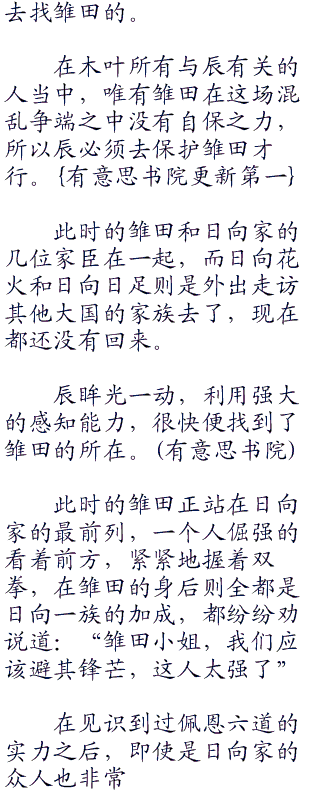 去找雏田的。
在木叶所有与辰有关的
人当中，唯有雏田在这场混
乱争端之中没有自保之力，
所以辰必须去保护雏田才
行。{有意思书院更新第一}
此时的雏田和日向家的
几位家臣在一起，而日向花
火和日向日足则是外出走访
其他大国的家族去了，现在
都还没有回来。
辰眸光一动，利用强大
的感知能力，很快便找到了
雏田的所在。(有意思书院)
此时的雏田正站在日向
家的最前列，一个人倔强的
看着前方，紧紧地握着双
拳，在雏田的身后则全都是
日向一族的加成，都纷纷劝
说道：“雏田小姐，我们应
该避其锋芒，这人太强了”
在见识到过佩恩六道的
实力之后，即使是日向家的
众人也非常